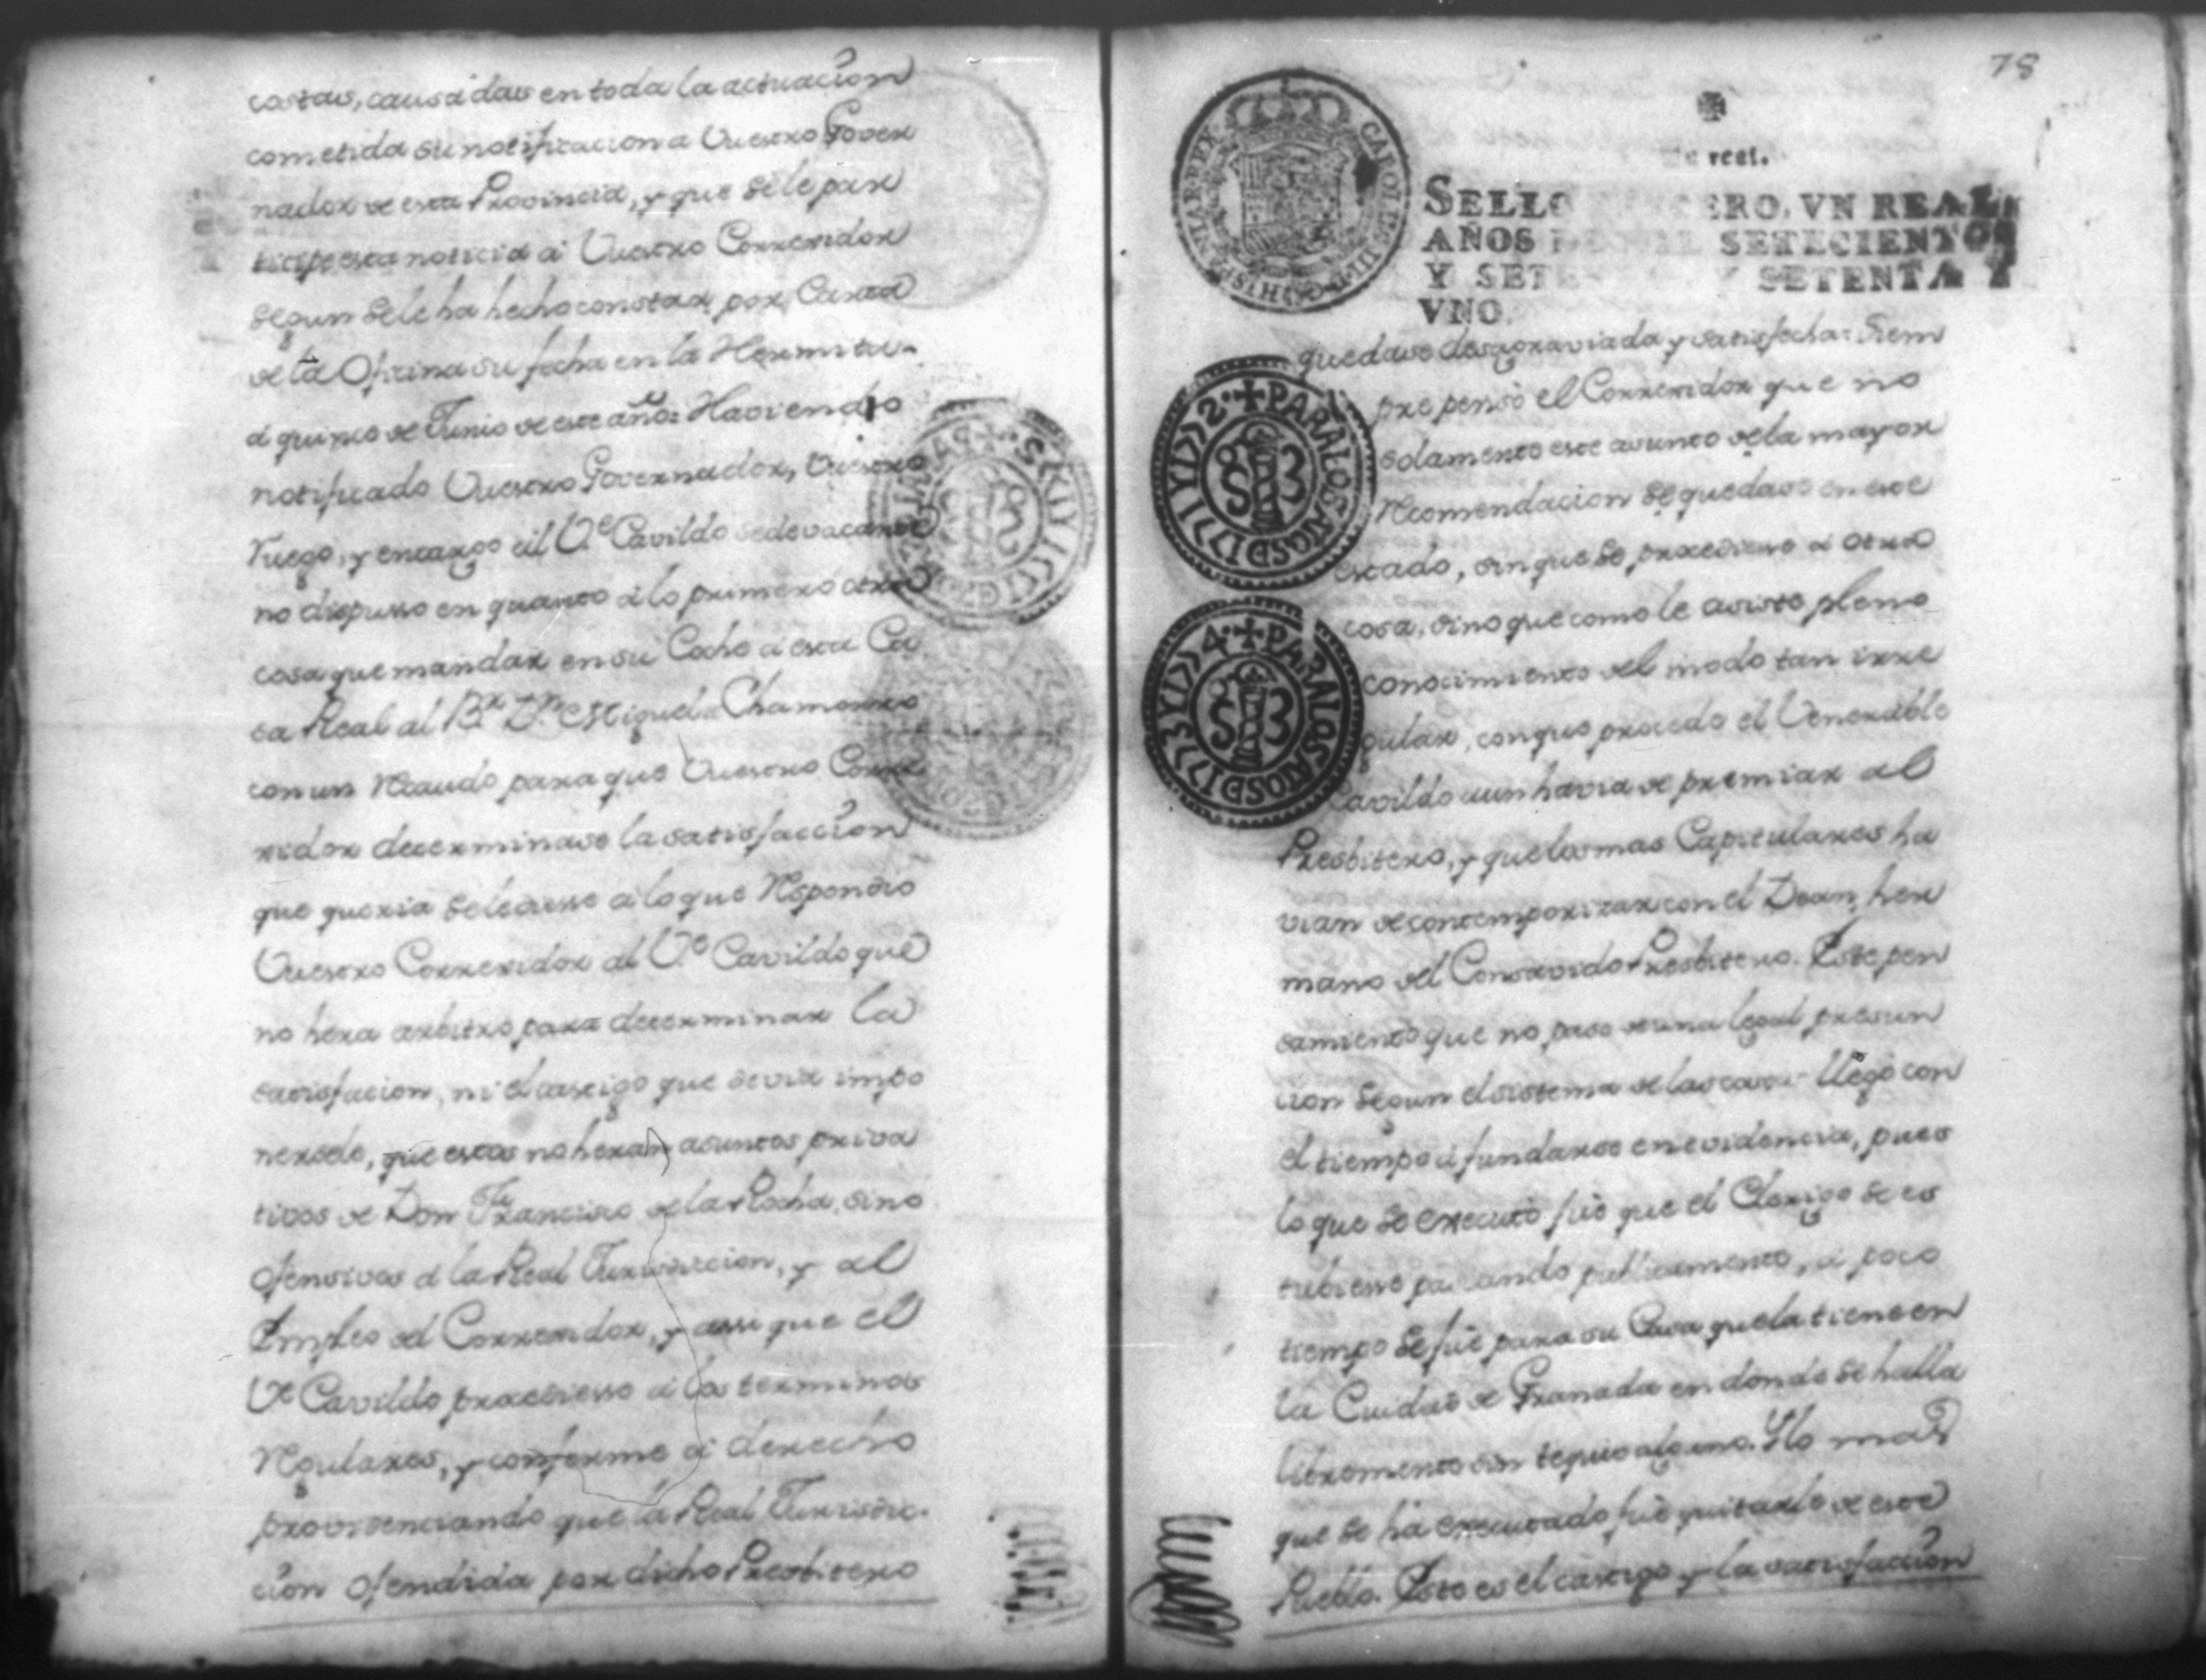 costas, causadas en toda la actuacion
cometida su notificacion a Vuestro Gover
nador de esta Provincia, y que se le par
ticipe esta noticia à Vuestro Corregidor
segun se le ha hecho constar por Carta
de la Oficina su fecha en la Hermita
à quince de Junio de este año: Haviendo
notificado Vuestro Governador, Vuestro
Ruego, y encargo àl Ve. Cavildo sedevacante
no dispusso en quanto à lo primero otra
cosa que mandar en su Coche à esta Ca
sa Real al Br. Dn. Miguel Chamorro
con un Recaudo para que Vuestro Corre
xidor determinase la satisfaccion
que queria se le diesse à lo que Respondio
Vuestro Correxidor al Ve. Cavildo que
no hera arbitro para determinar la
satisfacion, ni el castigo que devia impo
nersele, que estos no heran asuntos priva
tivos de Don Francisco de la Rocha, sino
ofensivos à la Real Jurisdiccion, y al
Empleo del Correxidor, y assi que el
Ve Cavildo procediesse à los terminos
Regulares, y conforme à derecho
providenciando que la Real Jurisdic-
cion ofendida por dicho Presbitero
78
real.
SELLO ERO, VN REAL,
AÑOS SETECIENTOS
Y SETE Y SETENTA Y
VNO.
CAROLUS III D G HISPANIAR REX
PARA LOS AÑOS D 1771 Y 1772
PARA LOS AÑOS D 1773 Y 1774
quedase desagraviada y satisfecha: Siem
pre pensò el Correxidor que no
solamente este asunto de la mayor
Recomendacion se quedase en este
estado, sin que se procediesse à otra
cosa, sino que como le asiste pleno
conocimiento del modo tan irre
gular, con que procede el Venerable
Cavildo aun havia de premiar al
Presbitero, y que los mas Capitulares ha
vian de contemporizar con el Dean, her
mano del Presbitero. Este pen
samiento que no paso de una legal presun
cion segun el sistema de las cosas llegò con
el tiempo à fundarse en evidencia, pues
lo que se executò fuè que el Clerigo se es
tubiesse paseando publicamente, à poco
tiempo se fuè para su Casa que la tiene en
la Ciudad de Granada en donde se halla
libremente sin alguno. Y lo mas
que se hà executado fuè quitarle de este
Pueblo. Este es el castigo, y la satisfaccion